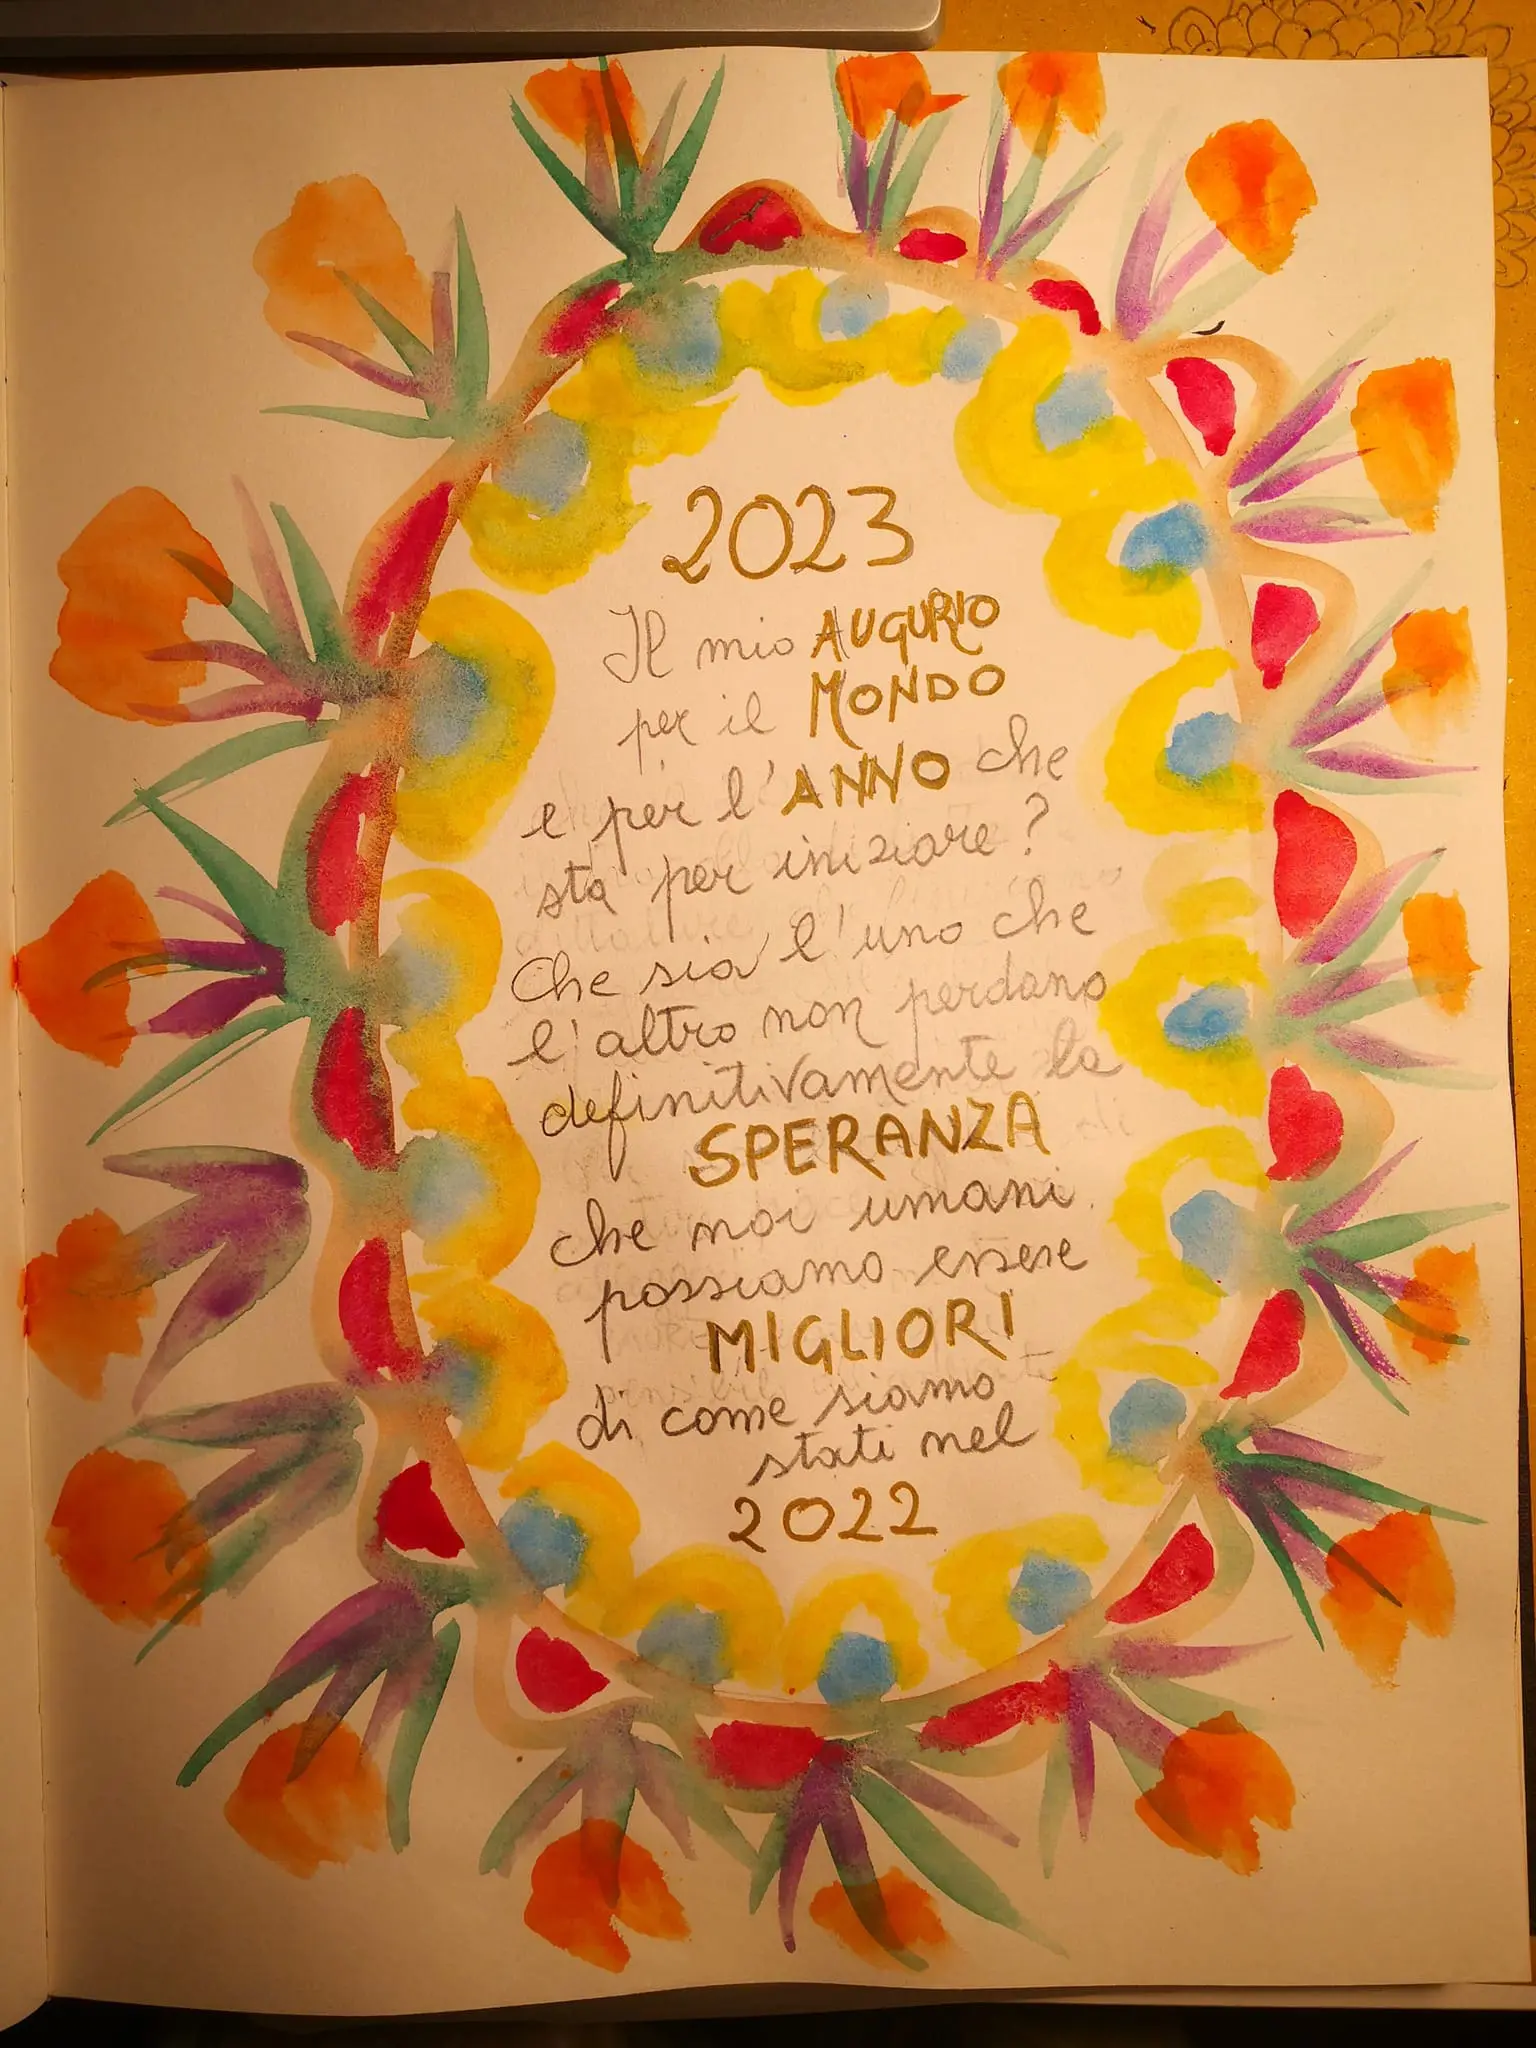 2023
Il mio AUGURIO
per il MONDO
e per l'ANNO che
sta per iniziare?
Che sia l'uno che
l'altro non perdano
definitivamente la
SPERANZA
che noi umani
possiamo essere
MIGLIORI
di come siamo
stati nel
2022